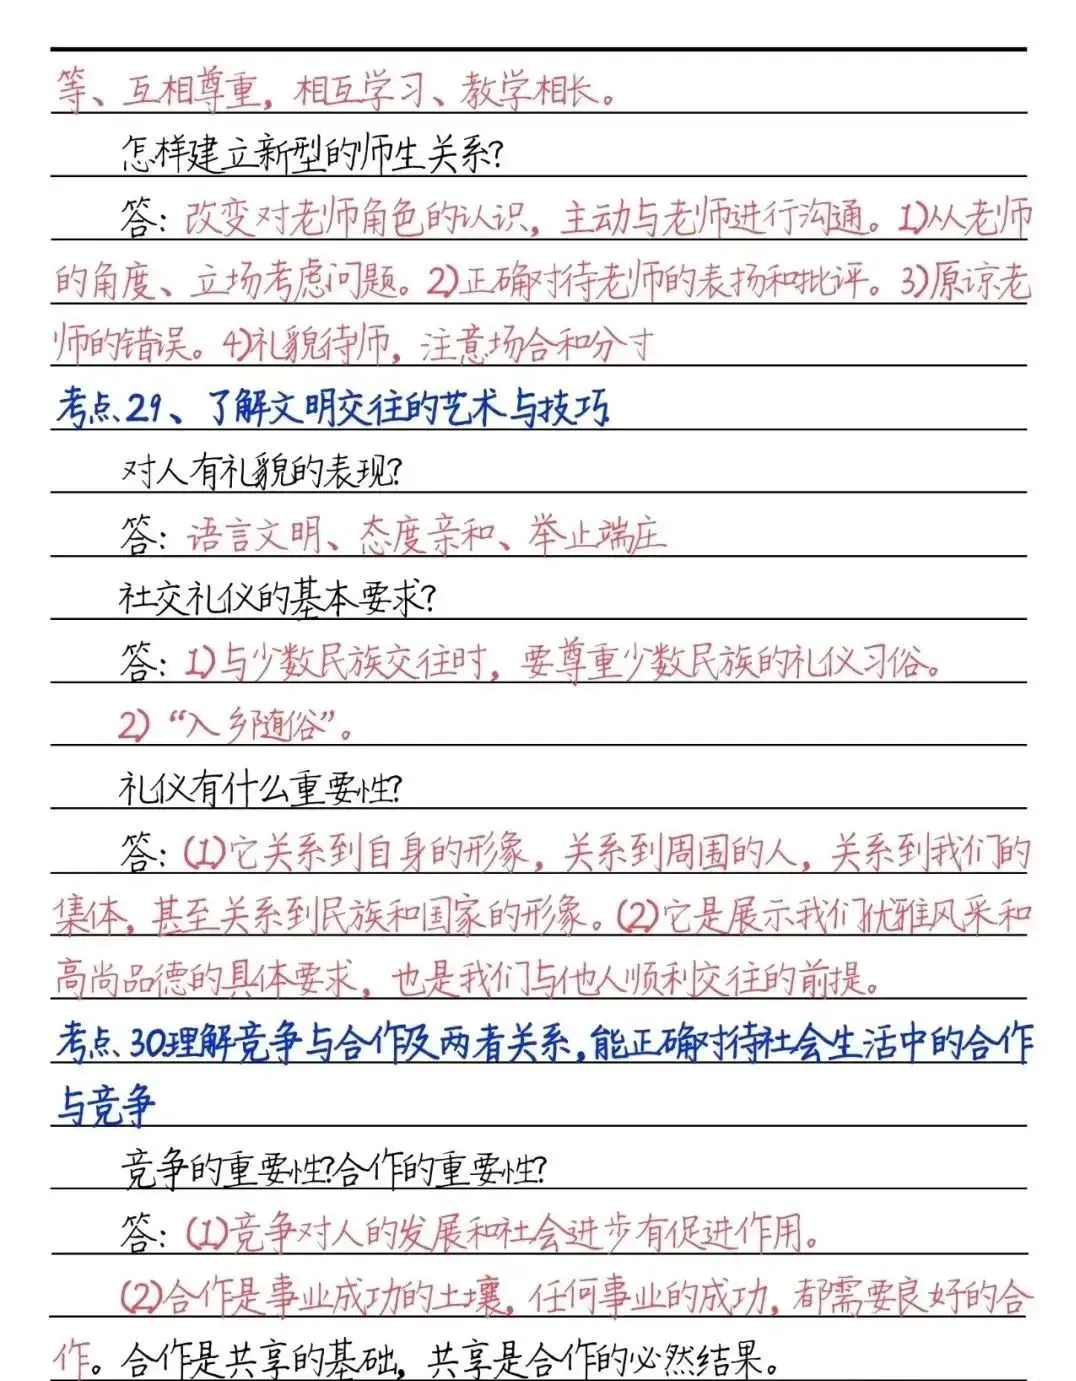 等、互相尊重，相互学习、教学相长。
怎样建立新型的师生关系?
答：改变对老师角色的认识，主动与老师进行沟通。1)从老师
的角度、立场考虑问题。2)正确对待老师的表扬和批评。3)原谅老
师的错误。4)礼貌待师，注意场合和分寸
考点29、了解文明交往的艺术与技巧
对人有礼貌的表现?
答：语言文明、态度亲和、举止端庄
社交礼仪的基本要求?
答：1)与少数民族交往时，要尊重少数民族的礼仪习俗。
2)“入乡随俗”。
礼仪有什么重要性?
答：(1)它关系到自身的形象，关系到周围的人，关系到我们的
集体，甚至关系到民族和国家的形象。(2)它是展示我们优雅风采和
高尚品德的具体要求，也是我们与他人顺利交往的前提。
考点30理解竞争与合作及两者关系，能正确对待社会生活中的合作
与竞争
竞争的重要性?合作的重要性?
答：(1)竞争对人的发展和社会进步有促进作用。
(2)合作是事业成功的土壤，任何事业的成功，都需要良好的合
作。合作是共享的基础，共享是合作的必然结果。